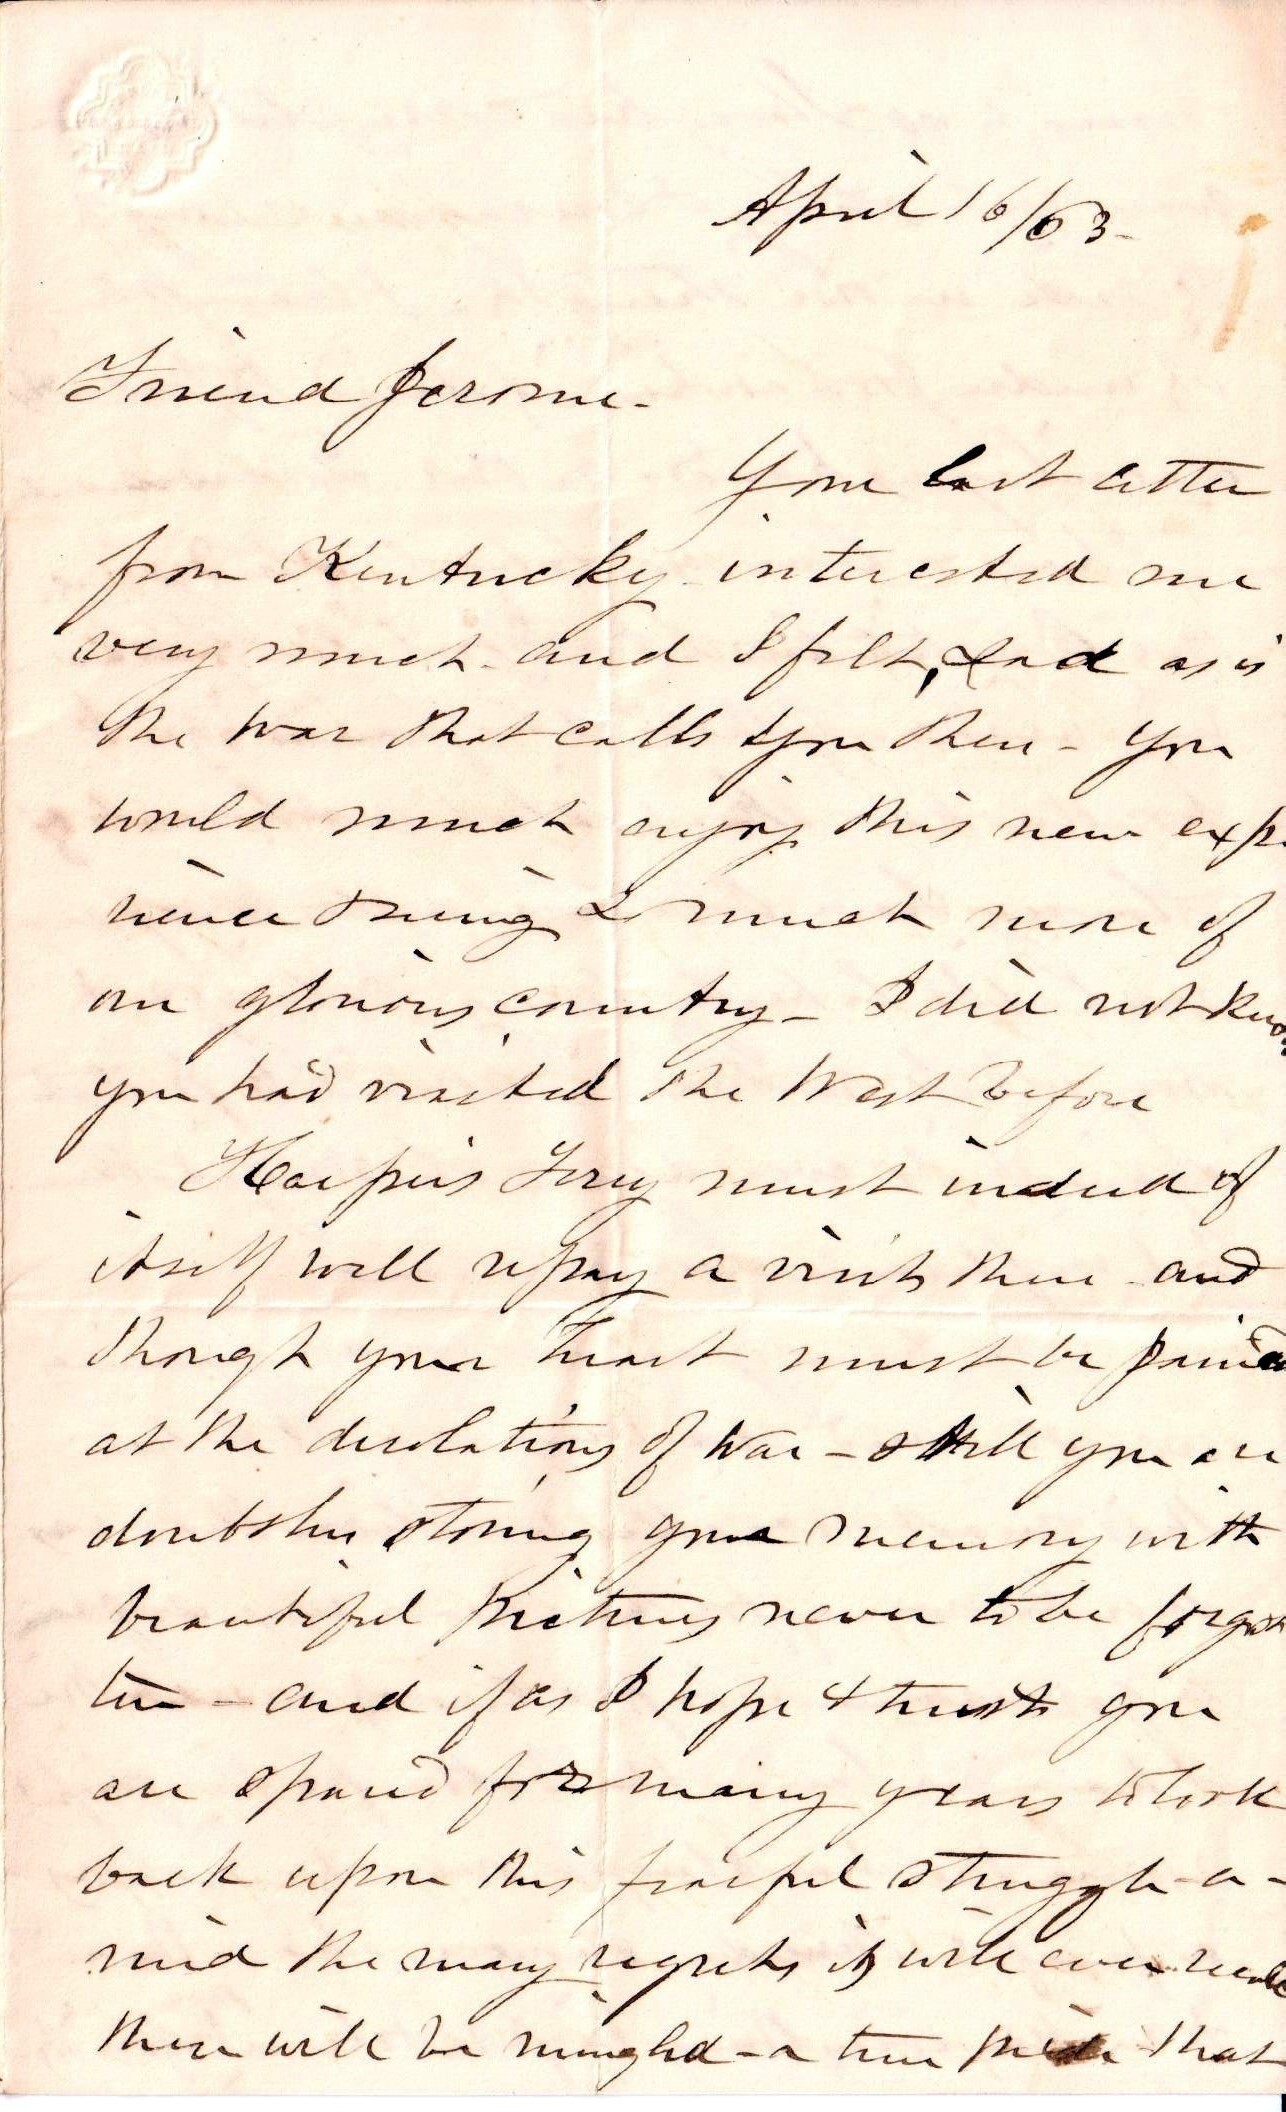 April 16/63-
Friend Jerome-
Your last letter
from Kentucky interested me
very much and I felt, sad as is
the war that calls you there - you
would much enjoy this new expe
rience seeing so much more of
our glorious country - I did not know
you had visited the West before
Harpers Ferry must indeed of
itself well repay a visit there and
though your heart must be pained
at the desolations of war - still you are
doubtless storing your memory with
beautiful pictures never to be forgot
ten - and if as I hope & trust you
are spared for many years to look
back upon this fearful struggle - a-
mid the many regrets it will ever
there will be mingled - a true pride that